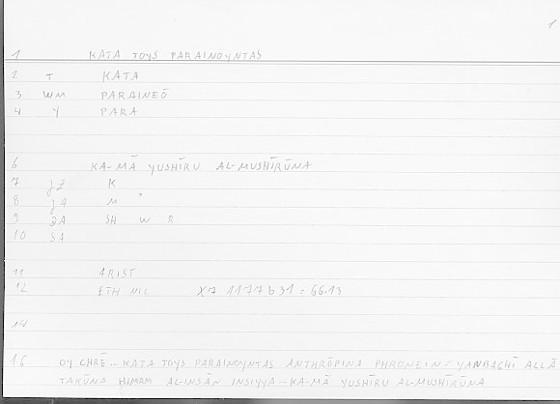 1
1 KATA TOYS PARAINOYNTAS
2 T KATA
3 WM PARAINEŌ
4 Y PARA
6 KA-MĀ YUSHĪRU AL-MUSHĪRŪNA
7 JZ K
8 JA M
9 SH W R
10 SA
11 ARIST
12 ETH NIC X7 1177 b 31 = 66.13
14
16 OY CHRĒ .. KATA TOYS PARAINOYNTAS ANTHRŌPINA PHRONEIN = YANBAGHĪ ALLĀ
TAKŪNA HIMAM AL-INSĀN INSIYYA - KA-MĀ YUSHĪRU AL-MUSHĪRŪNA